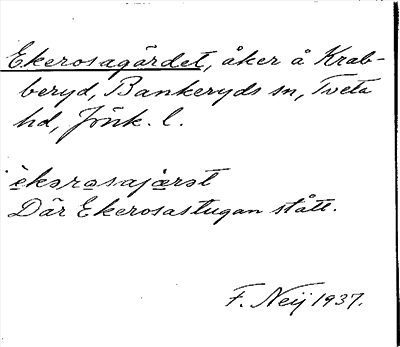 Ekerosagärdet, åker å Krab-
beryd, Bankeryds sn, Tveta
hd, Jönk. l.
èkərosajærət
Där Ekerosastugan stått.
F. Neij 1937.